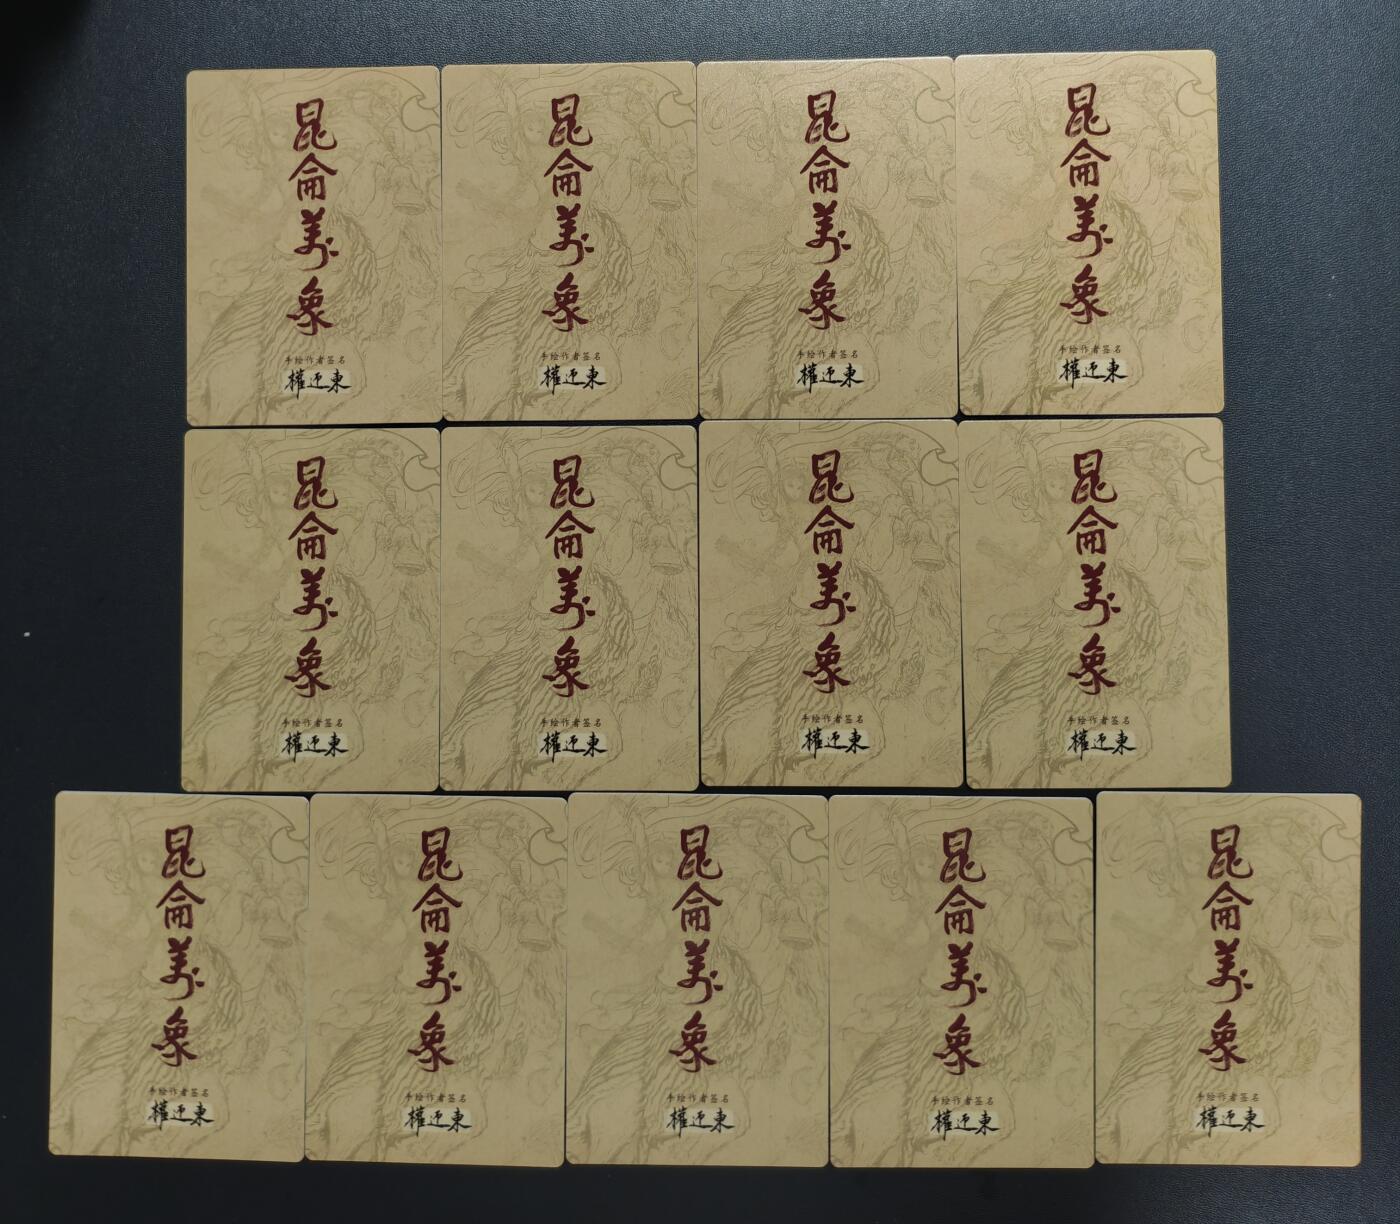 昆侖萬象
手绘作者签名
權迎東
昆侖萬象
手绘作者签名
權迎東
昆侖萬象
手绘作者签名
權迎東
昆侖萬象
手绘作者签名
權迎東
昆侖萬象
手绘作者签名
權迎東
昆侖萬象
手绘作者签名
權迎東
昆侖萬象
手绘作者签名
權迎東
昆侖萬象
手绘作者签名
權迎東
昆侖萬象
手绘作者签名
權迎東
昆侖萬象
手绘作者签名
權迎東
昆侖萬象
手绘作者签名
權迎東
昆侖萬象
手绘作者签名
權迎東
昆侖萬象
手绘作者签名
權迎東